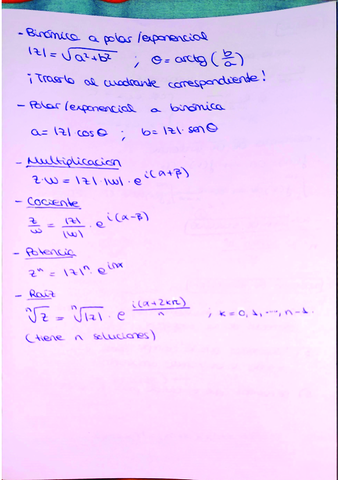 - Binómica a polar/exponencial
|z| = √a²+b² ; θ = arctg (b/a)
¡Traslado al cuadrante correspondiente!
- Polar/exponencial a binómica
a = |z| cos θ ; b = |z| · sen θ
- Multiplicacion
z·w = |z|·|w|· e^i(α+β)
- Cociente
z/w = |z|/|w| · e^i(α-β)
- Potencia
zⁿ = |z|ⁿ · e^inα
- Raíz
ⁿ√z = ⁿ√|z| · e^i(α+2kπ)/n ; k = 0, 1, ..., n-1.
(tiene n soluciones)